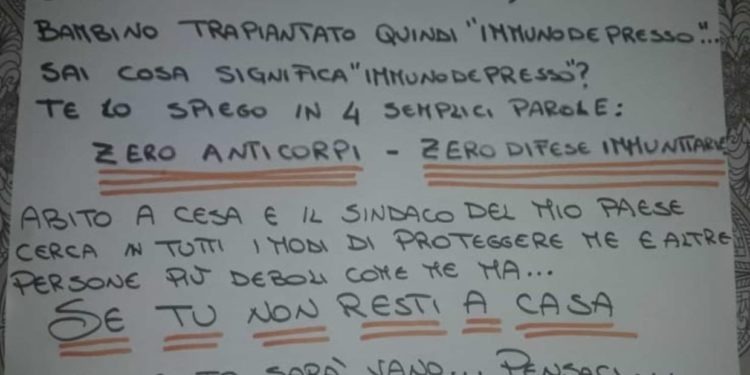 BAMBINO TRAPIANTATO QUINDI "IMMUNODEPRESSO"...
SAI COSA SIGNIFICA "IMMUNODEPRESSO"?
TE LO SPIEGO IN 4 SEMPLICI PAROLE:
ZERO ANTICORPI - ZERO DIFESE IMMUNITARIE
ABITO A CESA E IL SINDACO DEL MIO PAESE
CERCA IN TUTTI I MODI DI PROTEGGERE ME E ALTRE
PERSONE PIÙ DEBOLI COME ME MA...
SE TU NON RESTI A CASA
SARÀ VANO... PENSACI...